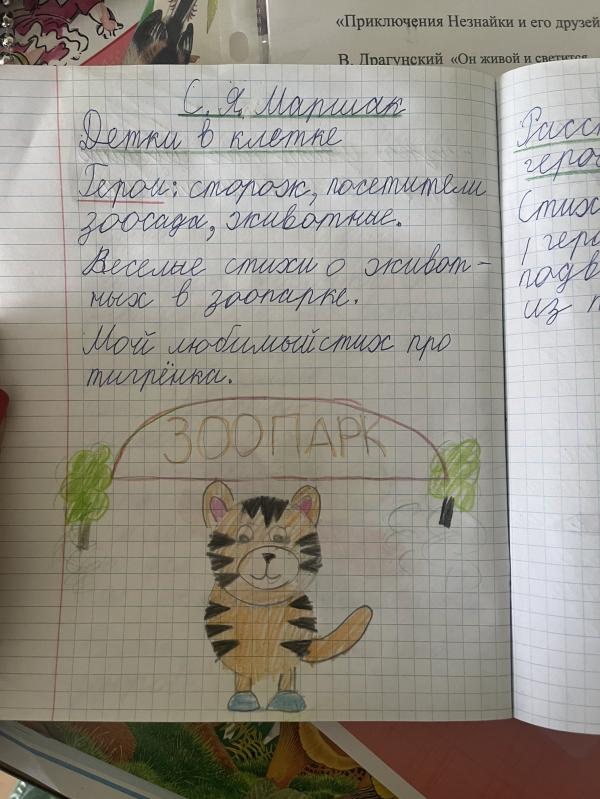 «Приключения Незнайки и его друзей
В. Драгунский «Он живой и светится
С. Я. Маршак
Детки в клетке
Герои: сторож, посетители
зоосада, животные.
Веселые стихи о живот-
ных в зоопарке.
Мой любимый стих про
тигрёнка.
ЗООПАРК
Расск
геро
Стих
1 геро
подв
из п